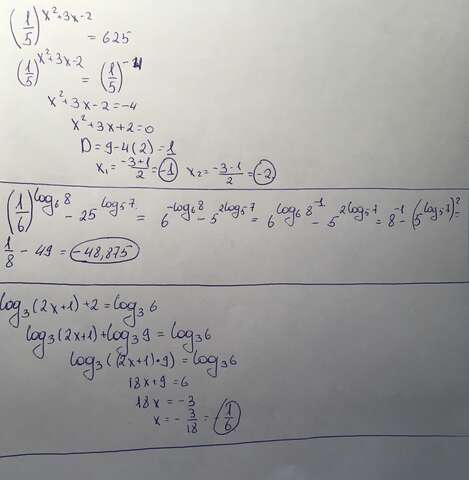 (1/5)^(x²+3x-2) = 625
(1/5)^(x²+3x-2) = (1/5)^(-4)
x²+3x-2=-4
x²+3x+2=0
D=9-4(2)=1
x₁=(-3+1)/2=-1 x₂=(-3-1)/2=-2
(1/6)^(log₆8) - 25^(log₅7) = 6^(-log₆8) - 5^(2log₅7) = 6^(log₆8⁻¹) - 5^(2log₅7) = 8⁻¹ - (5^(log₅7))² =
1/8 - 49 = -48,875
log₃(2x+1)+2=log₃6
log₃(2x+1)+log₃9=log₃6
log₃((2x+1)·9)=log₃6
18x+9=6
18x=-3
x=-3/18=-1/6